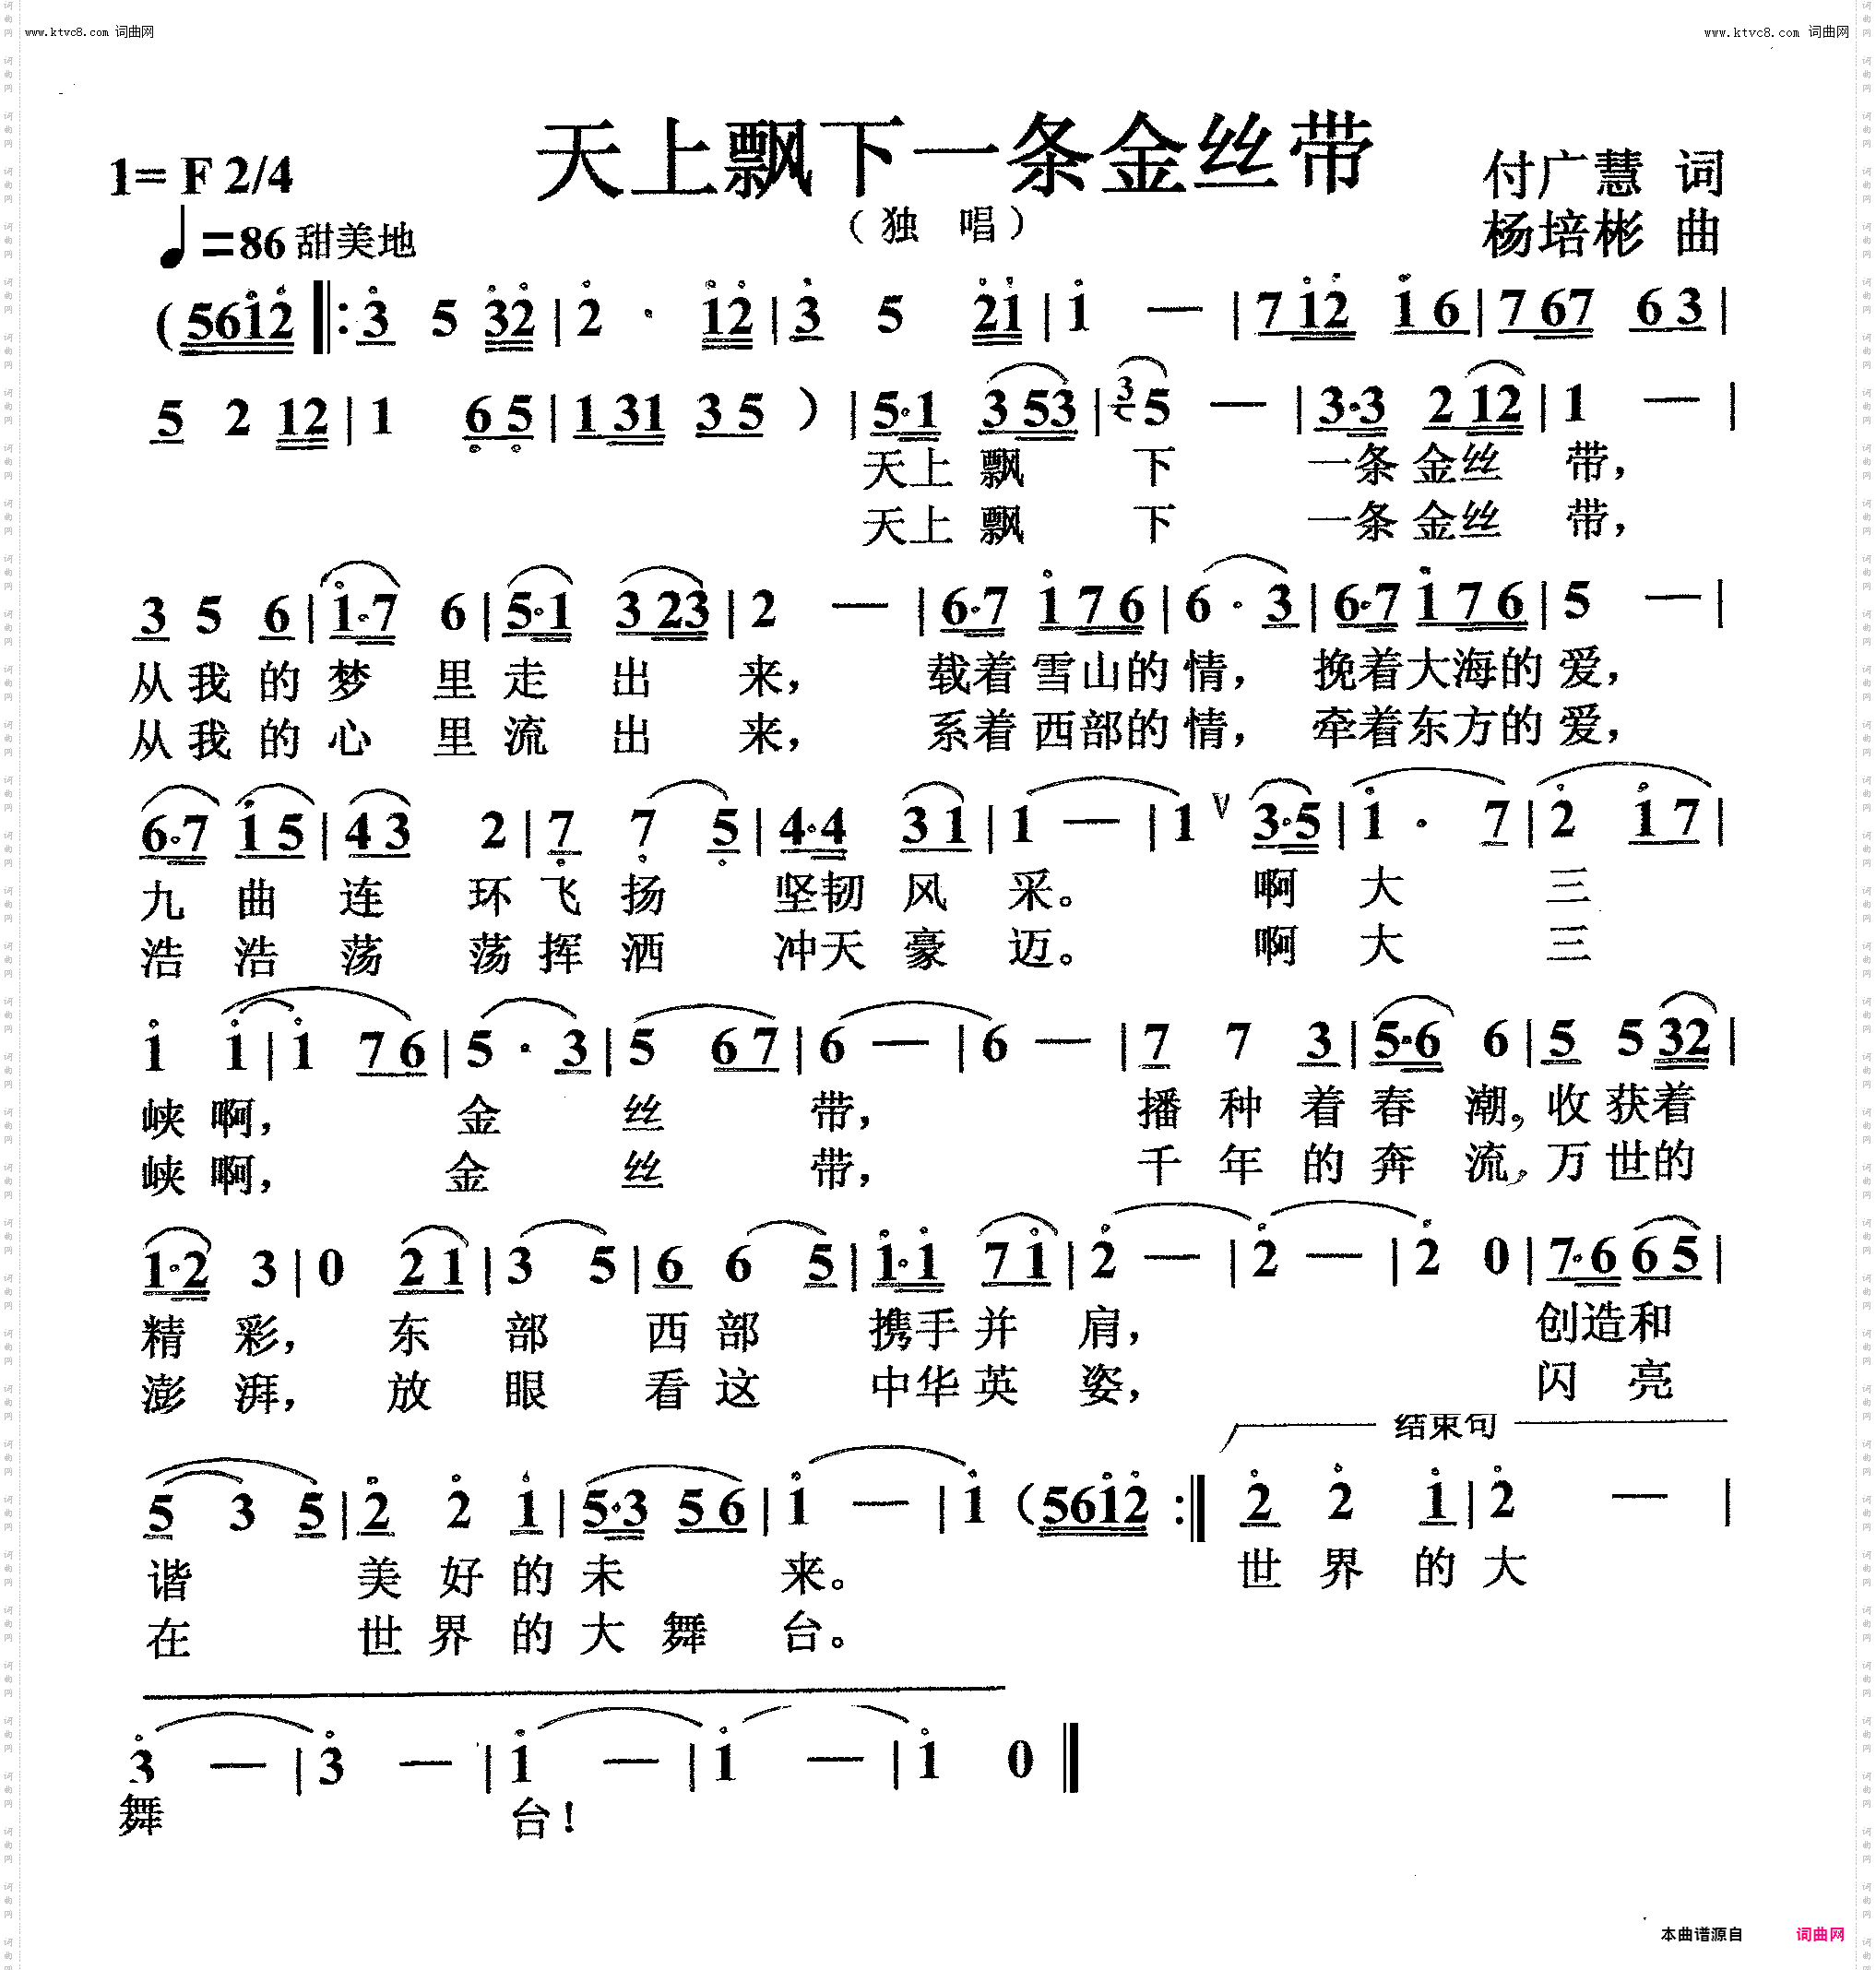 www.ktvc8.com 词曲网
www.ktvc8.com 词曲网
天上飘下一条金丝带
1= F 2/4
付广慧 词
(独 唱)
杨培彬 曲
♩=86 甜美地
(561̇2̇ ‖: 3̇ 5 3̇2̇ | 2̇ · 1̇2̇ | 3̇ 5 2̇1̇ | 1̇ — | 7 1̇2̇ 1̇ 6 | 7 67 6 3 |
5 2 12 | 1 6̣ 5̣ | 1 31 3 5 ) | 5·1 3 53 | 3 5 — | 3·3 2 12 | 1 — |
天上 飘 下 一条 金丝 带，
天上 飘 下 一条 金丝 带，
3 5 6 | 1̇·7 6 | 5·1 3 23 | 2 — | 6·7 1̇ 7 6 | 6 · 3 | 6·7 1̇ 7 6 | 5 — |
从 我 的 梦 里 走 出 来， 载着 雪山的 情， 挽着大海的 爱，
从 我 的 心 里 流 出 来， 系着 西部的 情， 牵着东方的 爱，
6·7 1̇ 5 | 4 3 2 | 7̣ 7̣ 5̣ | 4·4 3 1 | 1 — | 1 V 3·5 | 1̇ · 7 | 2̇ 1̇ 7 |
九 曲 连 环 飞 扬 坚韧 风 采。 啊 大 三
浩 浩 荡 荡 挥 洒 冲天 豪 迈。 啊 大 三
1̇ 1̇ | 1̇ 7 6 | 5 · 3 | 5 6 7 | 6 — | 6 — | 7 7 3 | 5·6 6 | 5 5 32 |
峡 啊， 金 丝 带， 播 种 着 春 潮，收 获着
峡 啊， 金 丝 带， 千 年 的 奔 流，万 世的
1·2 3 | 0 2 1 | 3 5 | 6 6 5 | 1̇·1̇ 7 1̇ | 2̇ — | 2̇ — | 2̇ 0 | 7·6 6 5 |
精 彩， 东 部 西 部 携手 并 肩， 创造和
澎 湃， 放 眼 看 这 中华 英 姿， 闪 亮
结束句
5 3 5 | 2̇ 2̇ 1̇ | 5·3 5 6 | 1̇ — | 1̇ (561̇2̇ :‖ 2̇ 2̇ 1̇ | 2̇ — |
谐 美 好 的 未 来。 世 界 的 大
在 世 界 的 大 舞 台。
3̇ — | 3̇ — | 1̇ — | 1̇ — | 1̇ 0 ‖
舞 台！
本曲谱源自 词曲网